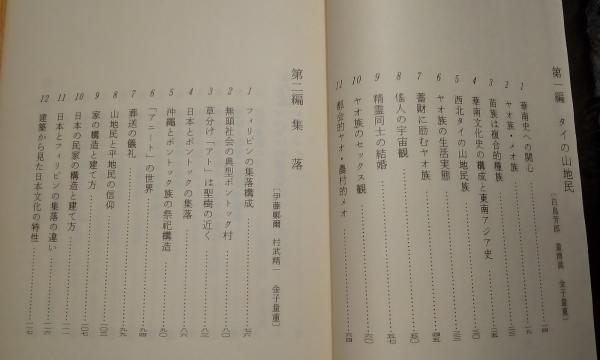 第一編 タイの山地民 〔白鳥芳郎 量博満 金子量重〕
1 華南史への関心
2 ヤオ族・メオ族
3 苗族は複合的種族
4 華南文化史の構成と東南アジア史
5 西北タイの山地民族
6 ヤオ族の生活実態
7 蓄財に励むヤオ族
8 傜人の宇宙観
9 精霊同士の結婚
10 ヤオ族のセックス観
11 都会的ヤオ・農村的メオ
第二編 集落 〔伊藤鄭爾 村武精一 金子量重〕
1 フィリピンの集落構成 七六
2 無頭社会の典型ボントック村 八〇
3 草分け「アト」は聖樹の近く 八三
4 日本とボントックの集落
5 沖縄とボントック族の祭祀構造
6 「アニート」の世界 九四
7 葬送の儀礼 九九
8 山地民と平地民の信仰
9 家の構造と建て方 一〇七
10 日本の民家の構造と建て方
11 日本とフィリピンの集落の違い
12 建築から見た日本文化の特性 一一七